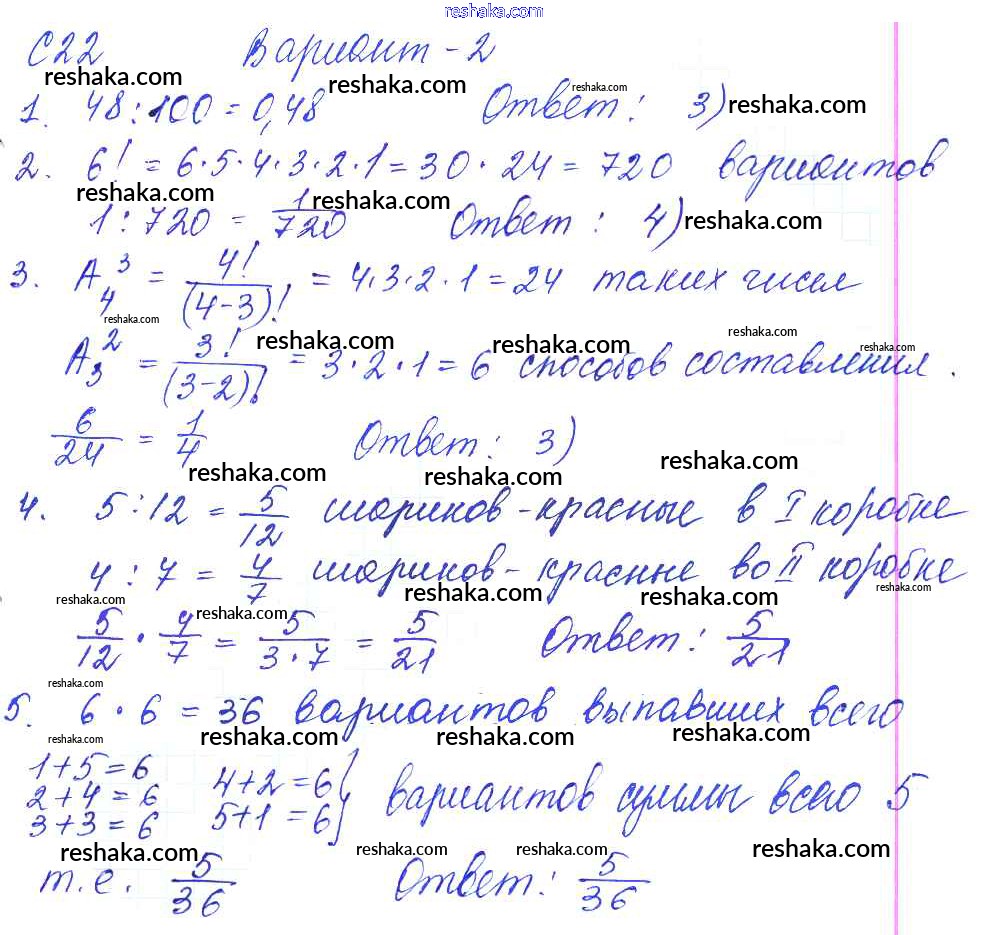 reshaka.com
С22 Вариант - 2
reshaka.com reshaka.com reshaka.com
1. 48 : 100 = 0,48 Ответ: 3) reshaka.com
2. 6! = 6·5·4·3·2·1 = 30·24 = 720 вариантов
reshaka.com reshaka.com
1 : 720 = 1/720 Ответ: 4) reshaka.com
3. A₄³ = 4!/(4-3)! = 4·3·2·1 = 24 таких чисел
reshaka.com reshaka.com reshaka.com reshaka.com reshaka.com
A₃² = 3!/(3-2)! = 3·2·1 = 6 способов составления.
6/24 = 1/4 Ответ: 3)
reshaka.com reshaka.com reshaka.com
4. 5 : 12 = 5/12 шариков - красные в I коробке
4 : 7 = 4/7 шариков - красные во II коробке
reshaka.com reshaka.com reshaka.com reshaka.com reshaka.com
5/12 · 4/7 = 5/3·7 = 5/21 Ответ: 5/21
reshaka.com
5. 6·6 = 36 вариантов выпавших всего
reshaka.com reshaka.com reshaka.com reshaka.com
1+5=6 4+2=6
2+4=6 5+1=6 } вариантов суммы всего 5
3+3=6
reshaka.com reshaka.com reshaka.com reshaka.com
т.е. 5/36 Ответ: 5/36